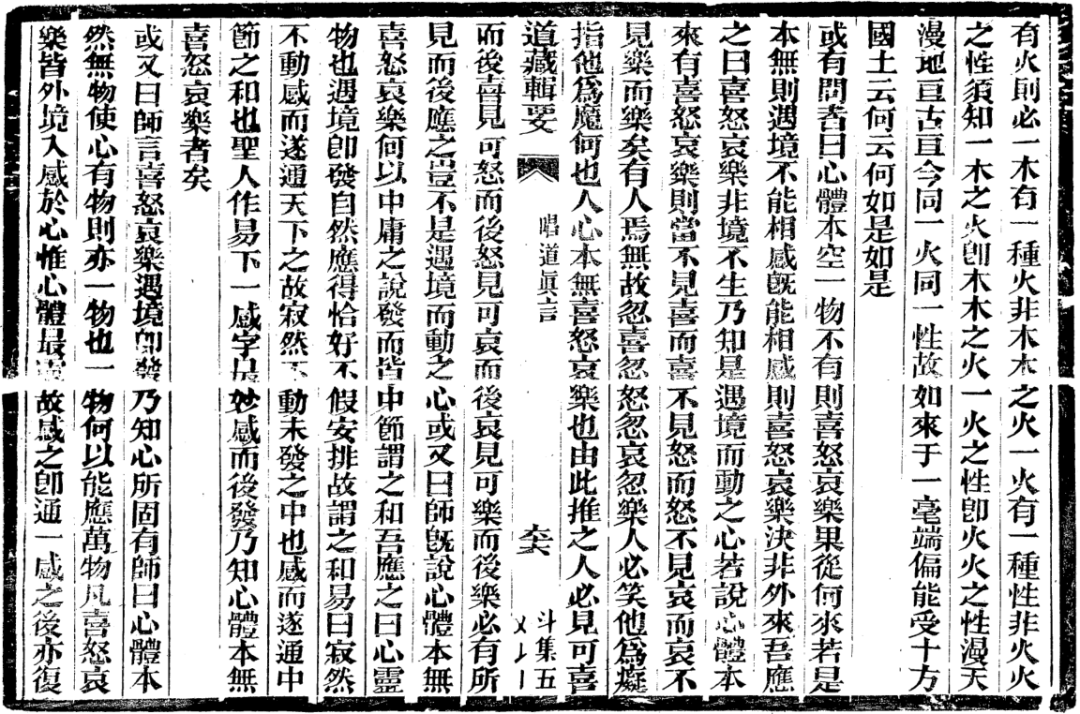 有火則必一木有一種火非木木之火一火有一種性非火火
之性須知一木之火卽木木之火一火之性卽火火之性漫天
漫地亘古亘今同一火同一性故如來于一毫端偏能受十方
國土云何云何如是如是
或有問者曰心體本空一物不有則喜怒哀樂果從何來若是
本無則遇境不能相感旣能相感則喜怒哀樂決非外來吾應
之曰喜怒哀樂非境不生乃知是遇境而動之心若說心體本
來有喜怒哀樂則當不見喜而喜不見怒而怒不見哀而哀不
見樂而樂矣有人焉無故忽喜忽怒忽哀忽樂人必笑他爲癡
指他爲魔何也人心本無喜怒哀樂也由此推之人必見可喜
道藏輯要
唱道眞言
六
斗集五
而後喜見可怒而後怒見可哀而後哀見可樂而後樂必有所
見而後應之豈不是遇境而動之心或又曰師旣說心體本無
喜怒哀樂何以中庸之說發而皆中節謂之和吾應之曰心靈
物也遇境卽發自然應得恰好不假安排故謂之和易曰寂然
不動感而遂通天下之故寂然不動未發之中也感而遂通中
節之和也聖人作易下一感字最妙感而後發乃知心體本無
喜怒哀樂者矣
或又曰師言喜怒哀樂遇境卽發乃知心所固有師曰心體本
然無物使心有物則亦一物也一物何以能應萬物凡喜怒哀
樂皆外境入感於心惟心體最故感之卽通一感之後亦復